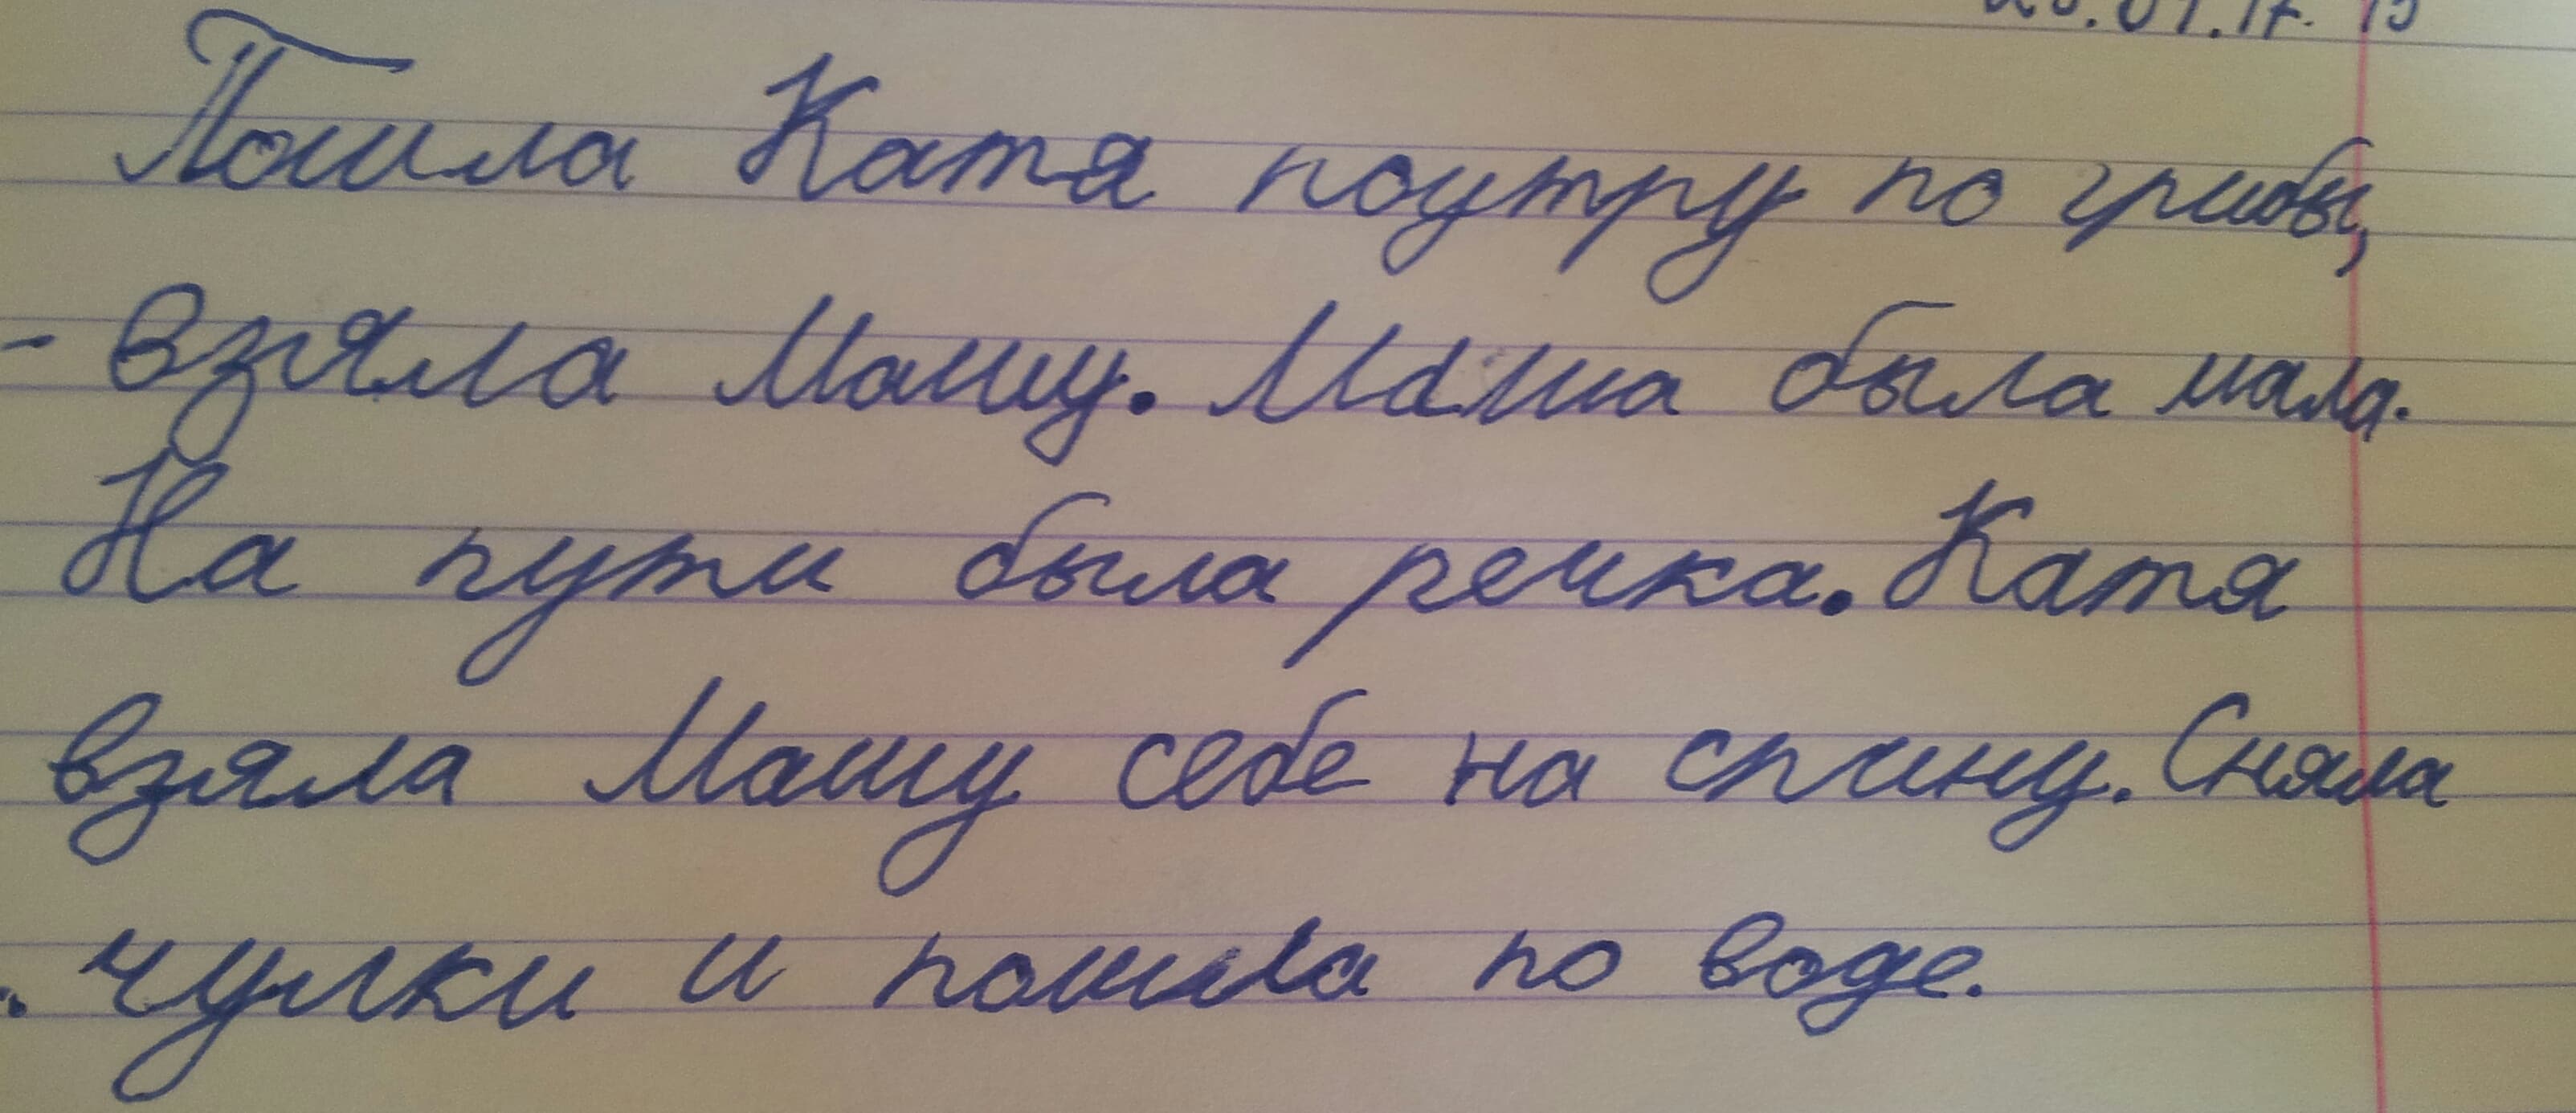 Пошла Катя поутру по грибы,
- взяла Машу. Маша была мала.
На пути была речка. Катя
взяла Машу себе на спину. Сняла
чулки и пошла по воде.